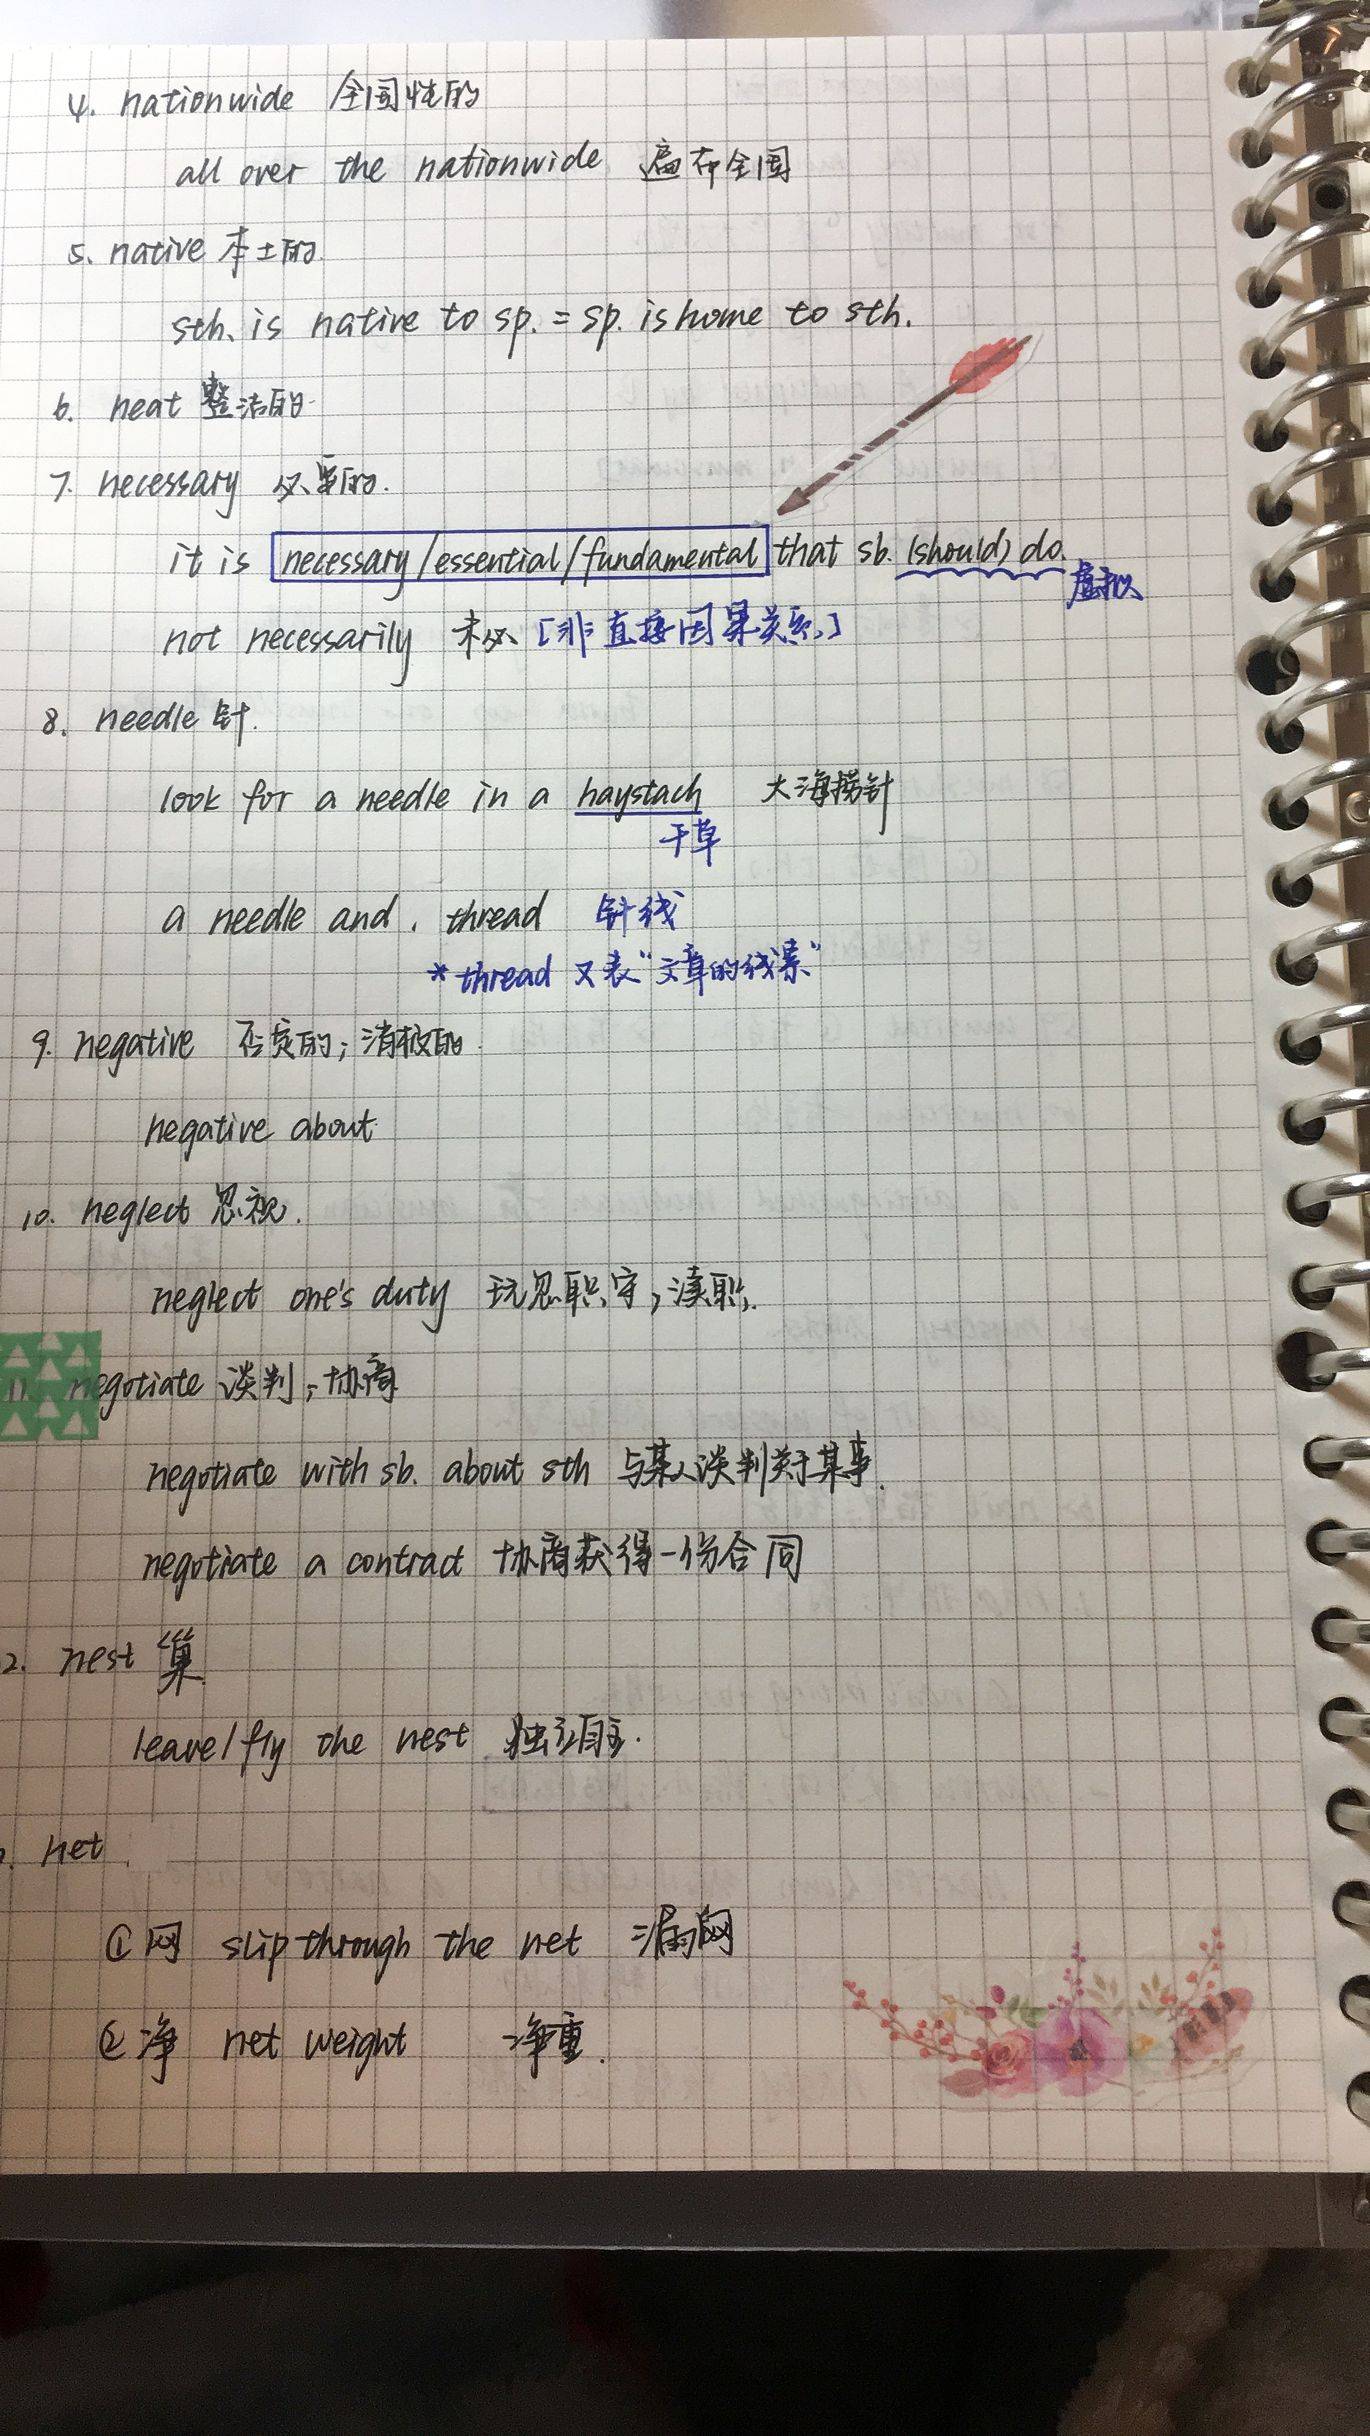 4. nationwide 全国性的
all over the nationwide 遍布全国
5. native 本土的.
sth. is native to sp. = sp. is home to sth.
6. neat 整洁的.
7. necessary 必要的.
it is necessary/essential/fundamental that sb. (should) do.
虚拟
not necessarily 未必 [非直接因果关系]
8. needle 针.
look for a needle in a haystach 大海捞针
干草
a needle and . thread 针线
*thread 又表"文章的线索"
9. negative 否定的; 消极的.
negative about
10. neglect 忽视.
neglect one's duty 玩忽职守, 渎职.
11. negotiate 谈判; 协商
negotiate with sb. about sth 与某人谈判关于某事.
negotiate a contract 协商获得一份合同
2. nest 巢
leave/fly the nest 独立自主.
. net
①网 slip through the net 漏网
②净 net weight 净重.